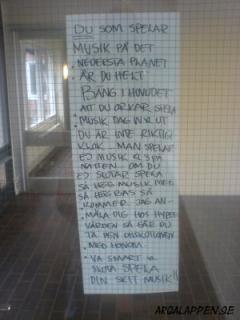 DU SOM SPELAR
MUSIK PÅ DET
NEDERSTA PLANET
ÄR DU HELT
BÄNG I HUVUDET
ATT DU ORKAR SPELA
MUSIK DAG IN & UT
DU ÄR INTE RIKTIGT
KLOK. MAN SPELAR
EJ MUSIK KL 3 PÅ
NATTEN. OM DU
EJ SLUTAR SPELA
SÅ HÖG MUSIK MED
SÅ HÖG BAS SÅ
KOMMER JAG AN-
MÄLA DIG HOS HYRES
VÄRDEN SÅ FÅR DU
TA DEN DISKUSSIONEN
MED HONOM.
VA SMART &
SLUTA SPELA
DIN SKIT MUSIK!!
ARGALAPPEN.SE